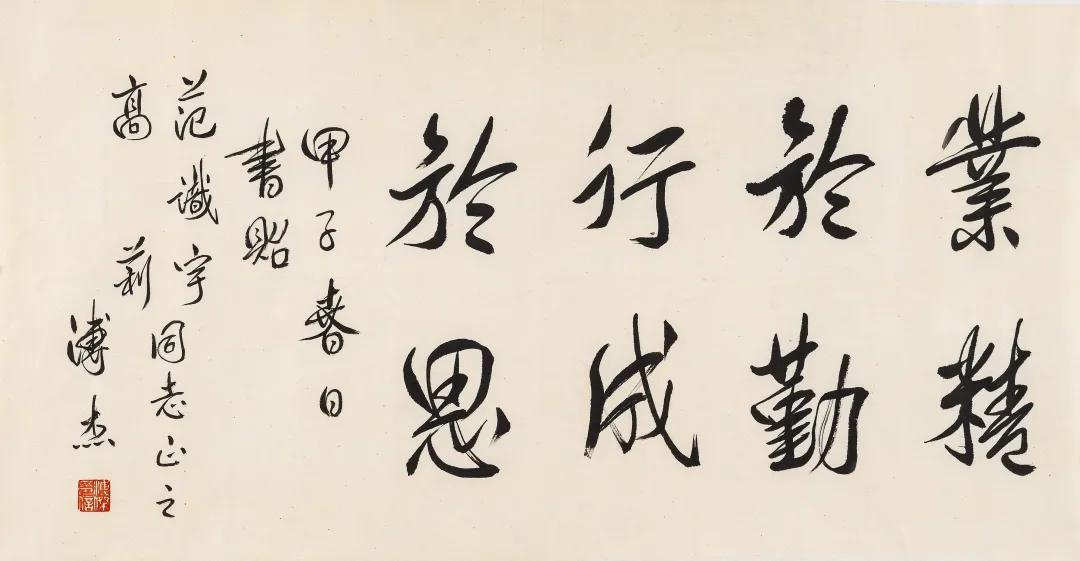 業精
於勤
行成
於思
甲子春日
書貽
范識宇
高莉
同志正之
溥杰